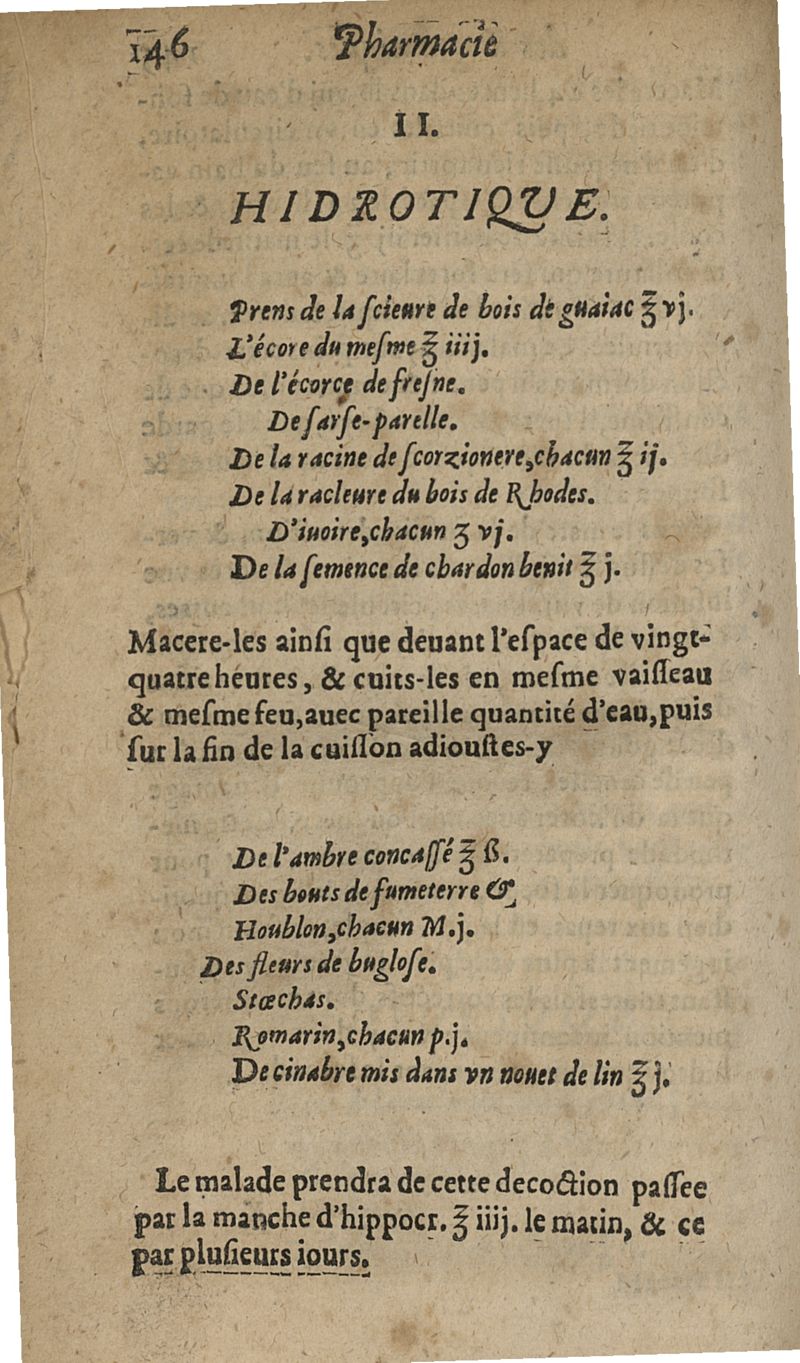 146 Pharmacie
II.
HIDROTIQUE.
Prens de la ſcieure de bois de guaiac ℥ vj.
L'écore du meſme ℥ iiij.
De l'écorce de freſne.
De ſarſe-parelle.
De la racine de ſcorzionere, chacun ℥ ij.
De la racleure du bois de Rhodes.
D'iuoire, chacun ʒ vj.
De la ſemence de chardon benit ℥ j.
Macere-les ainſi que deuant l'eſpace de vingt-
quatre heures, & cuits-les en meſme vaiſſeau
& meſme feu, auec pareille quantité d'eau, puis
ſur la fin de la cuiſſon adiouſtes-y
De l'ambre concaſſé ℥ ß.
Des bouts de fumeterre &
Houblon, chacun M.j.
Des fleurs de bugloſe.
Stœchas.
Romarin, chacun p.j.
De cinabre mis dans vn nouet de lin ℥ j.
Le malade prendra de cette decoction paſſee
par la manche d'hippocr. ℥ iiij. le matin, & ce
par pluſieurs iours.